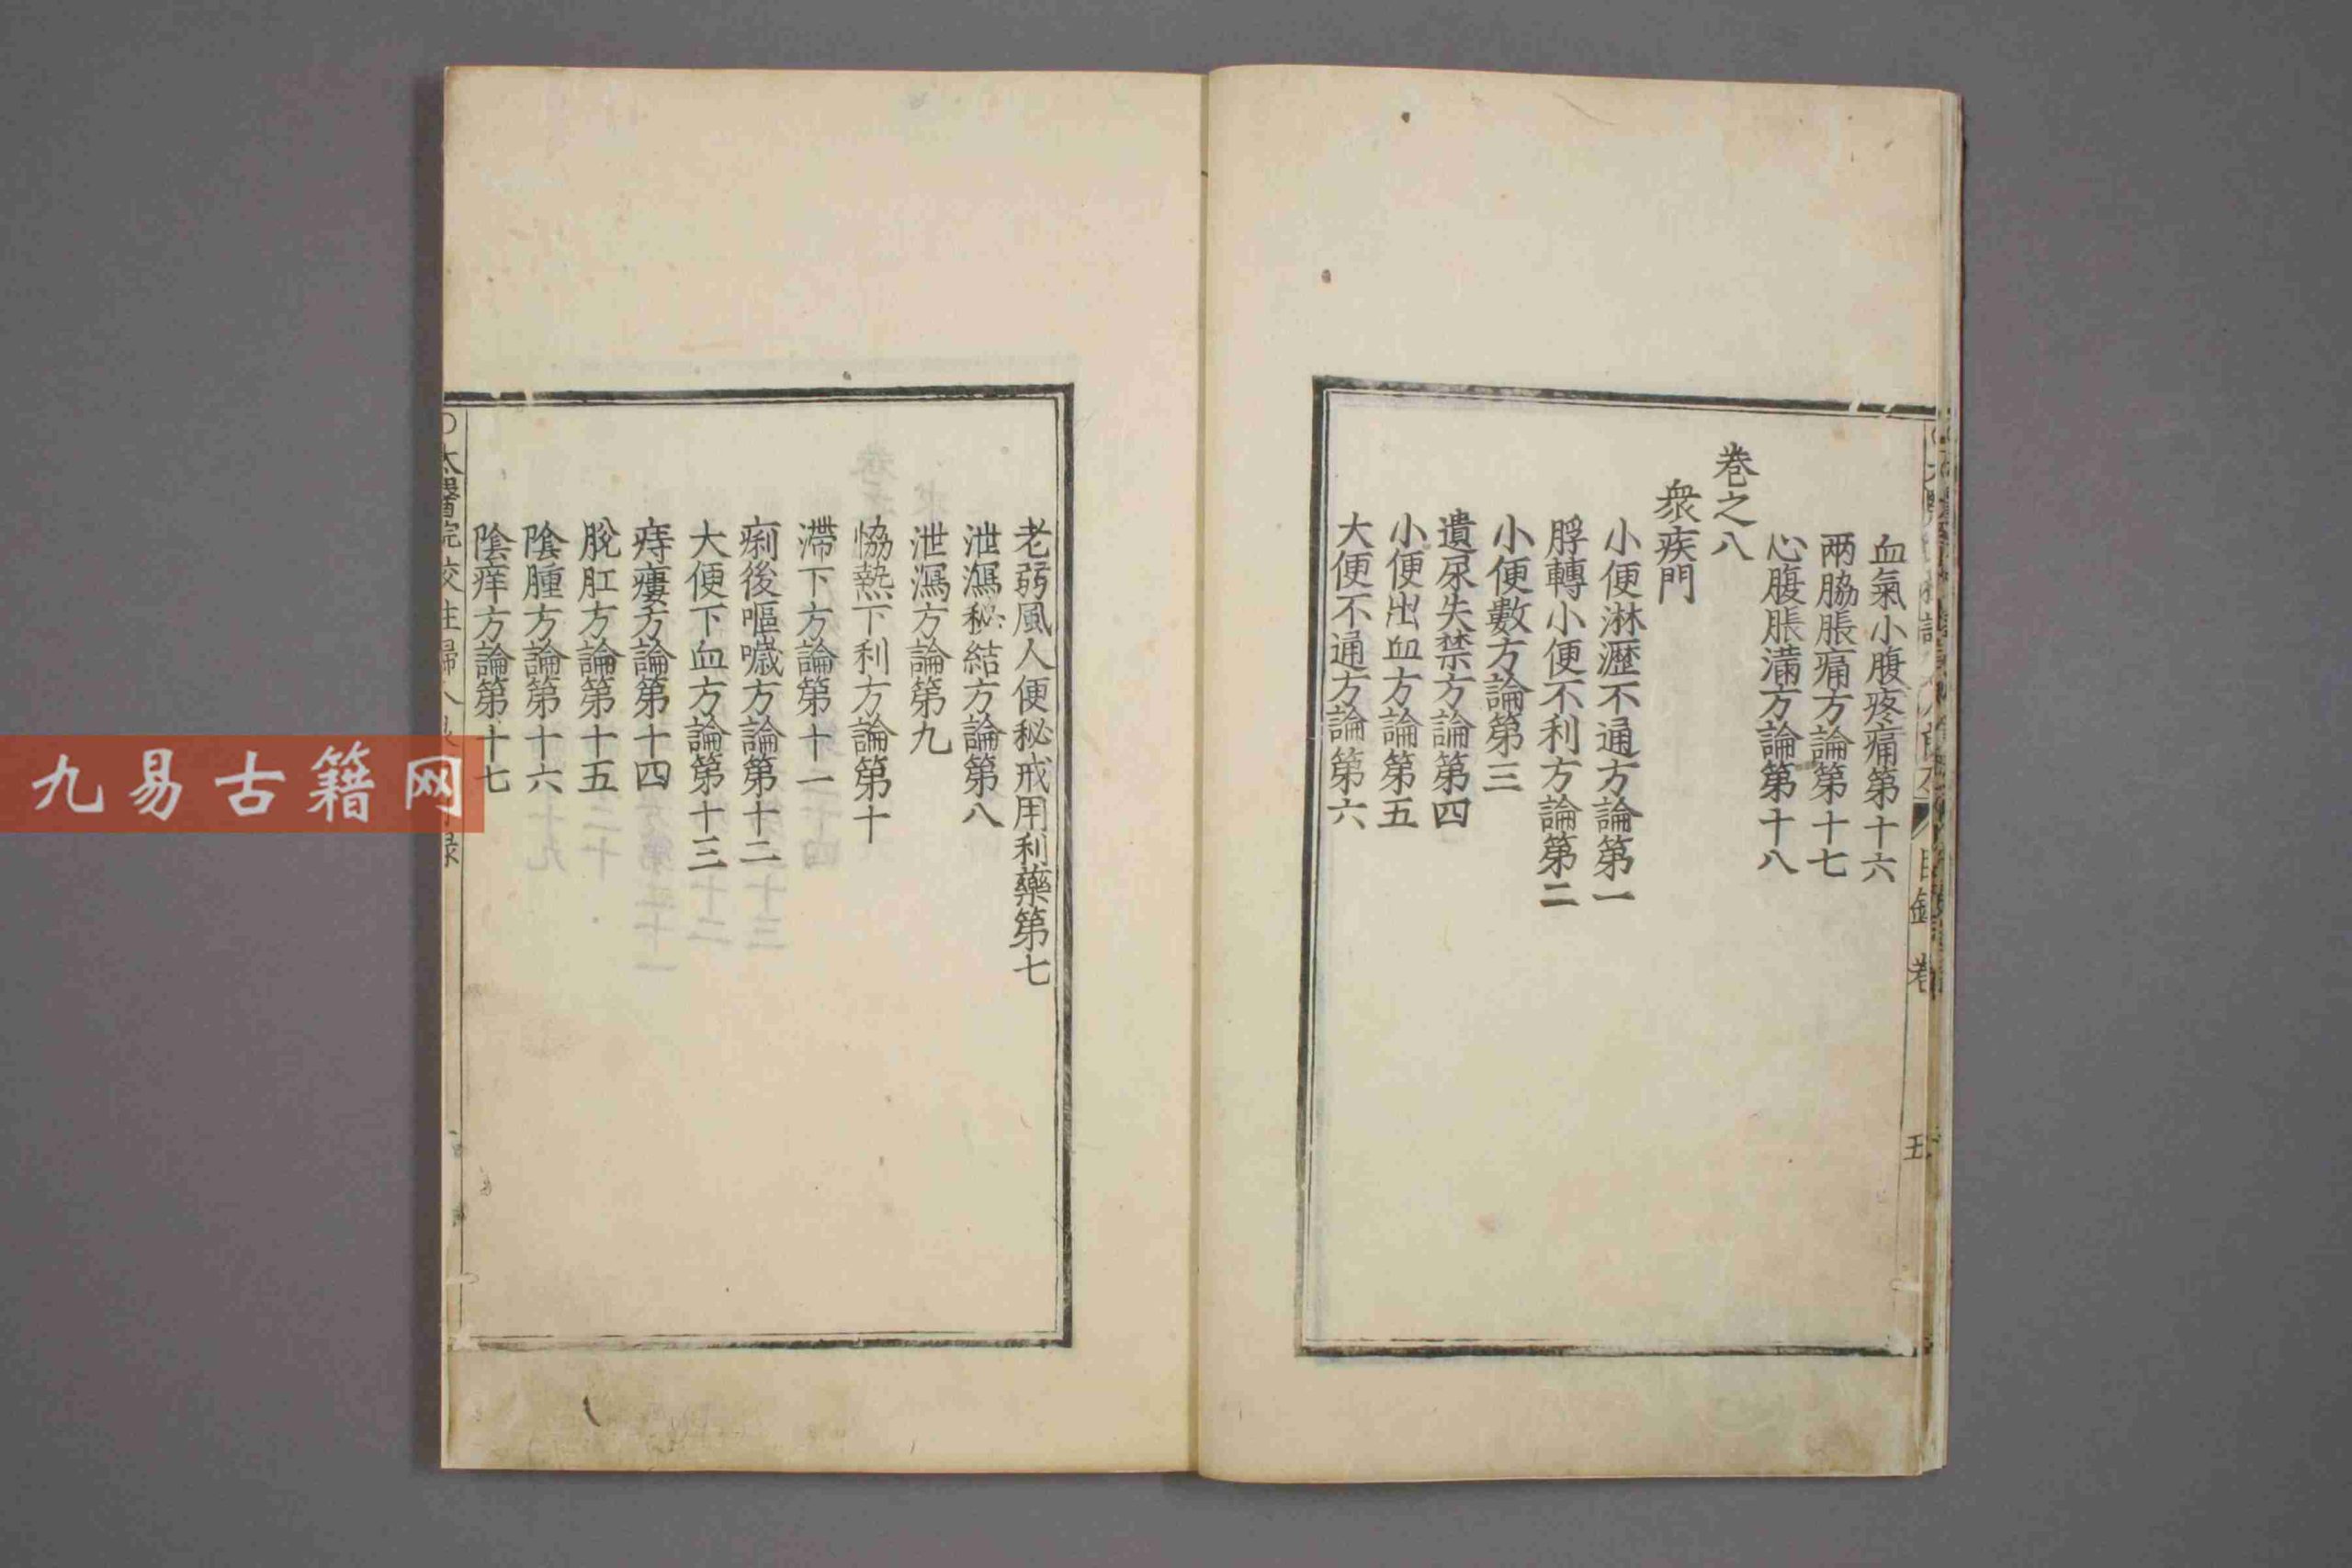 血氣小腹疼痛第十六
兩脇脹痛方論第十七
心腹脹滿方論第十八
卷之八
衆疾門
小便淋瀝不通方論第一
脬轉小便不利方論第二
小便數方論第三
遺尿失禁方論第四
小便出血方論第五
大便不通方論第六
老弱風人便秘戒用利藥第七
泄瀉秘結方論第八
泄瀉方論第九
恊熱下利方論第十
滯下方論第十一
痢後嘔噦方論第十二
大便下血方論第十三
痔瘻方論第十四
脫肛方論第十五
陰腫方論第十六
陰痒方論第十七
太醫院校註婦人良
目錄 卷
五
九易古籍网